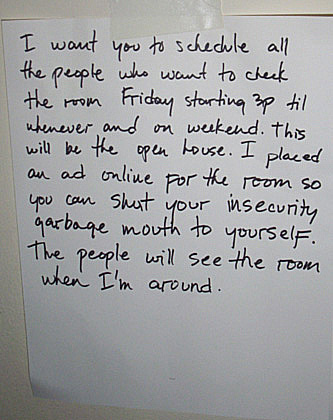 I want you to schedule all
the people who want to check
the room Friday starting 3p til
whenever and on weekend. This
will be the open house. I placed
an ad online for the room so
you can shut your insecurity
garbage mouth to yourself.
The people will see the room
when I'm around.